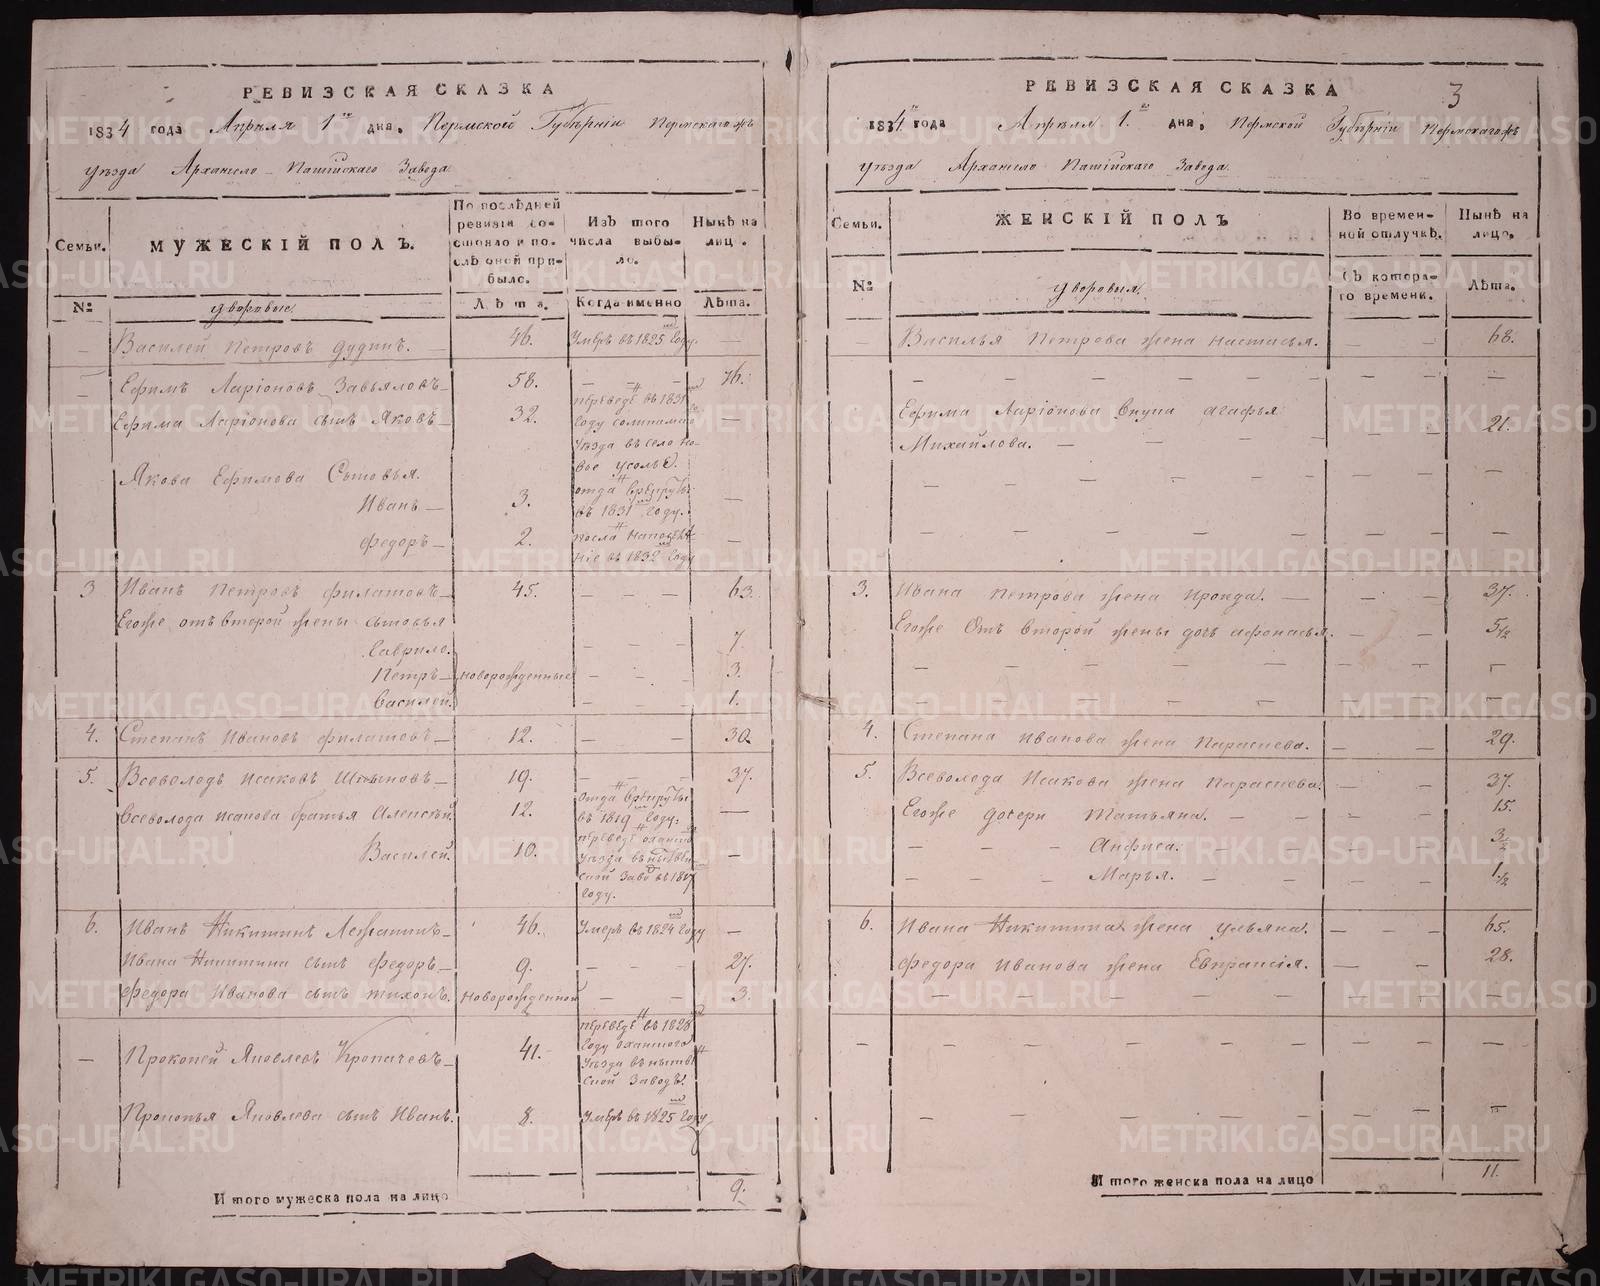 РЕВИЗСКАЯ СКАЗКА
1834 года Апреля 1го дня, Пермской Губѣрніи Пермскагожъ
уѣзда Архангело Пашійскаго Завода
Семьи.
МУЖЕСКІЙ ПОЛЪ.
По послѣдней
ревизіи со-
стояло и по-
слѣ оной при-
было.
Изъ того
числа выбы-
ло.
Нынѣ на
лицо.
№
дворовые
Лѣта.
Когда именно
Лѣта.
— Василей Петровъ Дудинъ. 46. Умеръ въ 1825 году —
— Ефимъ Ларіоновъ Завьяловъ — 58. — — — 76.
Ефима Ларіонова сынъ Яковъ — 32. —
переведе въ 1831
году соликамс
уѣзда въ село но-
вое усолье.
Якова Ефимова Сыновья.
Иванъ — 3. —
отда въ рекруты
въ 1831 году.
Федоръ — 2. —
посла на поселе-
ніе въ 1832 году
3 Иванъ Петровъ Филатовъ — 45. — — — 63.
Егоже отъ второй жены сыновья
Гаврило. — — — 7.
Петръ — новорожденные — — — 3.
Василей. — — — 1.
4. Степанъ Ивановъ Филатовъ — 12. — — 30.
5. Всеволодъ Исаковъ — 19. — — — 37.
Всеволода Исакова братья Алексѣй. 12. —
отда въ рекруты
въ 1819 году.
Василей. 10. —
переведе оханско
уѣзда въ нытвен-
ской Заво въ 1817
году.
6. Иванъ Никитинъ — 46. Умеръ въ 1824 году —
Ивана Никитина сынъ Федоръ — 9. — — — 27.
Федора Иванова сынъ Тихонъ. новорожденной — — 3.
переведе въ 1828
году оханского
уѣзда въ нытвен
ской Заводъ.
— Прокопей Яковлевъ Кропачевъ — 41.
Прокопья Яковлева сынъ Иванъ. 8. Умеръ въ 1825 году
Итого мужеска пола на лицо 9.
3
РЕВИЗСКАЯ СКАЗКА
1834 года Апреля 1го дня, Пермской Губѣрніи Пермскагожъ
уѣзда Архангело Пашійскаго Завода
Семьи.
ЖЕНСКІЙ ПОЛЪ
Во времен-
ной отлучкѣ.
Нынѣ на
лицо.
№
дворовыя.
Съ котора-
го времени.
Лѣта.
— Василья Петрова жена Настасья. — — 68.
Ефима Ларіонова внука Агафья
Михайлова. — 21.
3. Ивана Петрова жена — — — 37.
Егоже Отъ второй жены дочь Афонасья. — — 5 1/2
4. Степана Иванова жена Параскева. — — 29.
5. Всеволода Исакова жена Параскева. — — 37.
Егоже дотери Татьяна. — — 15.
Анфиса. — — 3/2
Марья. — — 1 1/2
6. Ивана Никитина жена Ульяна. — — — 65.
Федора Иванова жена Евпраксія. — — 28.
Итого женска пола на лицо 11.
METRIKI.GASO-URAL.RU